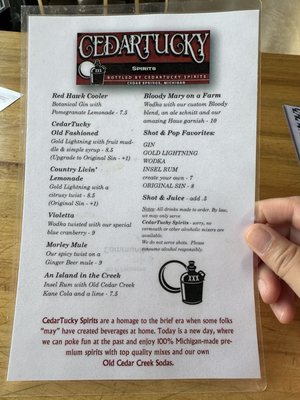 CEDARTUCKY
SPIRITS
BOTTLED BY CEDARTUCKY SPIRITS
CEDAR SPRINGS, MICHIGAN
Red Hawk Cooler
Botanical Gin with
Pomegranate Lemonade - 7.5
CedarTucky
Old Fashioned
Gold Lightning with fruit mud-
dle & simple syrup - 8.5
(Upgrade to Original Sin - +1)
Country Livin'
Lemonade
Gold Lightning with a
citrusy twist - 8.5
(Original Sin - +1)
Violetta
Vodka twisted with our special
blue cranberry - 9
Morley Mule
Our spicy twist on a
Ginger Beer mule - 9
An Island in the Creek
Insel Rum with Old Cedar Creek
Kane Cola and a lime - 7.5
Bloody Mary on a Farm
Vodka with our custom Bloody
blend, an ale schnitt and our
amazing Haus garnish - 10
Shot & Pop Favorites:
GIN
GOLD LIGHTNING
VODKA
INSEL RUM
create your own - 7
ORIGINAL SIN - 8
Shot & Juice - add .5
Notes: All drinks made to order. By law,
we may only serve
CedarTucky Spirits - sorry, no
vermouth or other alcoholic mixers are
available.
We do not serve shots. Please
consume alcohol responsibly.
XXX
CedarTucky Spirits are a homage to the brief era when some folks
"may" have created beverages at home. Today is a new day, where
we can poke fun at the past and enjoy 100% Michigan-made pre-
mium spirits with top quality mixes and our own
Old Cedar Creek Sodas.